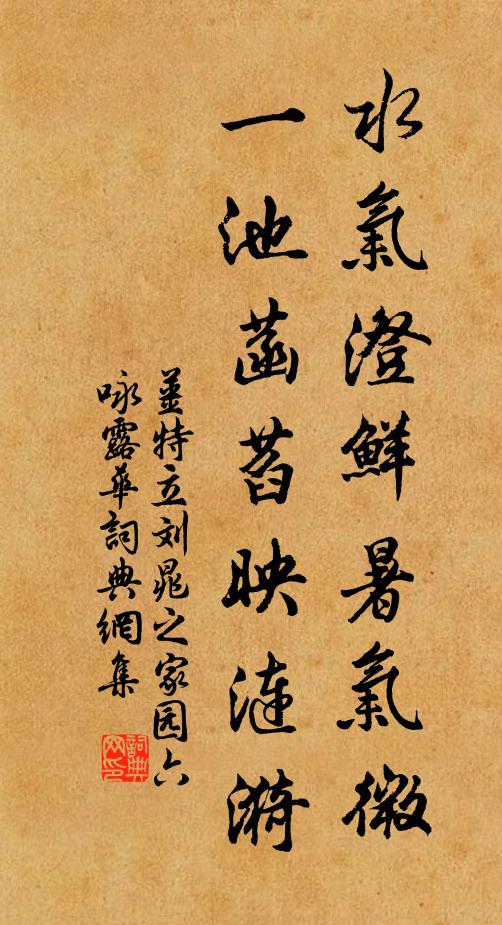 水氣澄鮮暑氣微
一池菡萏映漣漪
姜特立刘晁之家园六
咏露華詞典網集
詞典
网印